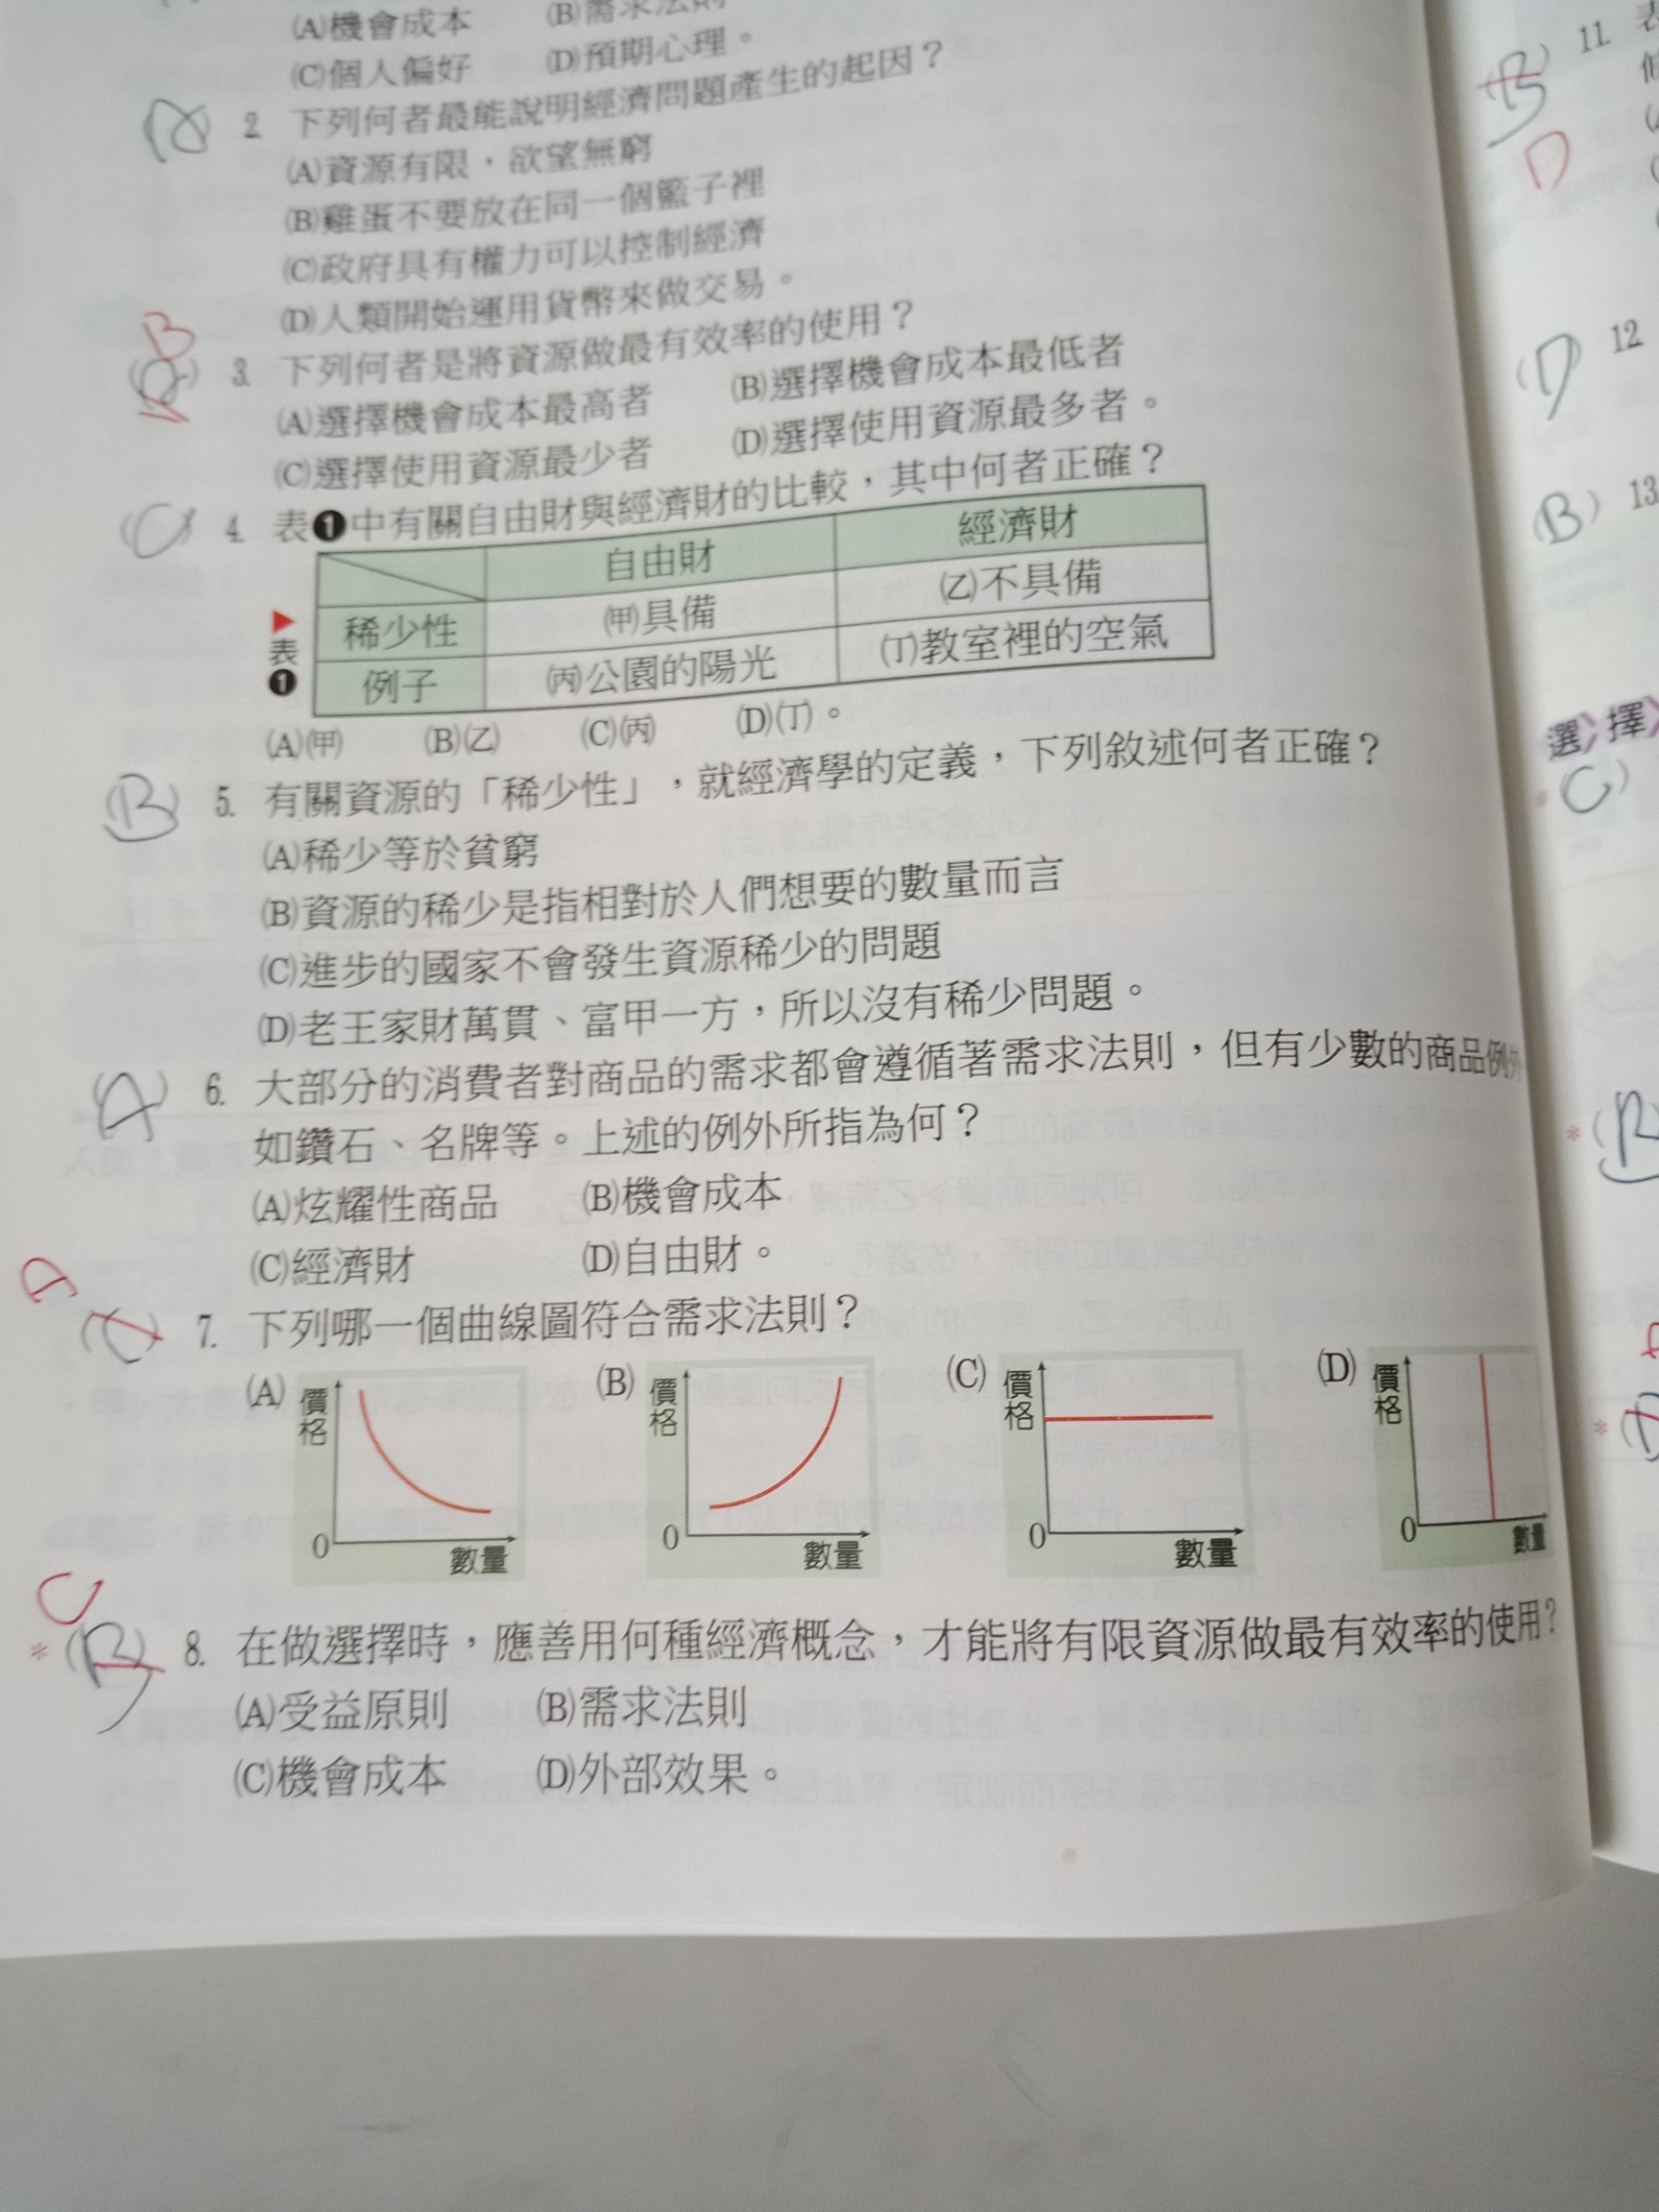 (A)機會成本 (B)需求法則
(C)個人偏好 (D)預期心理。
2. 下列何者最能說明經濟問題產生的起因？
(A)資源有限，欲望無窮
(B)雞蛋不要放在同一個籃子裡
(C)政府具有權力可以控制經濟
(D)人類開始運用貨幣來做交易。
B
3. 下列何者是將資源做最有效率的使用？
(A)選擇機會成本最高者 (B)選擇機會成本最低者
(C)選擇使用資源最少者 (D)選擇使用資源最多者。
(C) 4. 表❶中有關自由財與經濟財的比較，其中何者正確？
自由財 經濟財
稀少性 ㈎具備 ㈎不具備
例子 (丙)公園的陽光 (丁)教室裡的空氣
▶表❶
(A)(甲) (B)(乙) (C)(丙) (D)(丁)。
(B) 5. 有關資源的「稀少性」，就經濟學的定義，下列敘述何者正確？
(A)稀少等於貧窮
(B)資源的稀少是指相對於人們想要的數量而言
(C)進步的國家不會發生資源稀少的問題
(D)老王家財萬貫、富甲一方，所以沒有稀少問題。
(A) 6. 大部分的消費者對商品的需求都會遵循著需求法則，但有少數的商品例外
如鑽石、名牌等。上述的例外所指為何？
(A)炫耀性商品 (B)機會成本
(C)經濟財 (D)自由財。
A
(C) 7. 下列哪一個曲線圖符合需求法則？
(A) 價格 0 數量
(B) 價格 0 數量
(C) 價格 0 數量
(D) 價格 0 數量
C
* (B) 8. 在做選擇時，應善用何種經濟概念，才能將有限資源做最有效率的使用？
(A)受益原則 (B)需求法則
(C)機會成本 (D)外部效果。
(B) 11.
D
(D) 12
(B) 13
選擇
* (C)
* (B)
*